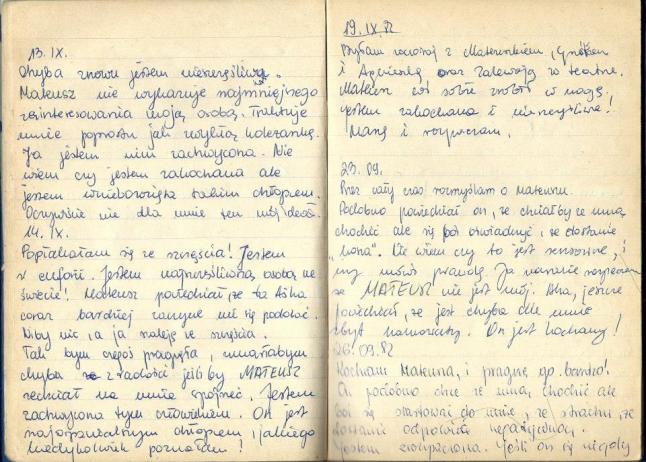 13. IX.
Chyba znowu jestem nieszczęśliwa.
Mateusz nie wykazuje najmniejszego
zainteresowania moją osobą. Traktuje
mnie poprostu jak zwykłą koleżankę.
Ja jestem nim zachwycona. Nie
wiem czy jestem zakochana ale
jestem takim chłopcem.
Oczywiście nie dla mnie ten mój ideał.
14. IX.
Popłakałam się ze szczęścia! Jestem
w euforii. Jestem najszczęśliwszą osobą na
świecie! Mateusz powiedział, że ta Aśka
coraz bardziej zaczyna mu się podobać.
Niby nic, a ja szaleję ze szczęścia.
Tak bym czegoś pragnęła, umarłabym
chyba z radości jeśli by MATEUSZ
zechciał na mnie spojrzeć. Jestem
zachwycona tym człowiekiem. On jest
najwspanialszym chłopcem, jakiego
kiedykolwiek poznałam!
19. IX. 82
Byłam wczoraj z Mateuszkiem,
i Agnieszką, oraz w teatrze.
Mateusz coś sobie zrobił w nogę.
Jestem zakochana i nieszczęśliwa!
Marzę i rozpaczam.
23. 09.
Przez cały czas rozmyślam o Mateuszu.
Podobno powiedział on, że chciałby ze mną
chodzić ale się boi oświadczyć, że dostanie
"kosza". Nie wiem czy to jest sensowne,
czy mówi prawdę. Ja naprawdę rozpaczam
że MATEUSZ nie jest mój. Aha, jeszcze
powiedział, że jest chyba dla mnie
zbyt On jest kochany!
26. 09. 82
Kocham Mateusza, i pragnę go bardzo!
On podobno chce ze mną chodzić ale
boi się startować do mnie, ze strachu, że
dostanie odpowiedź negatywną.
Jestem Jeśli on się nigdy